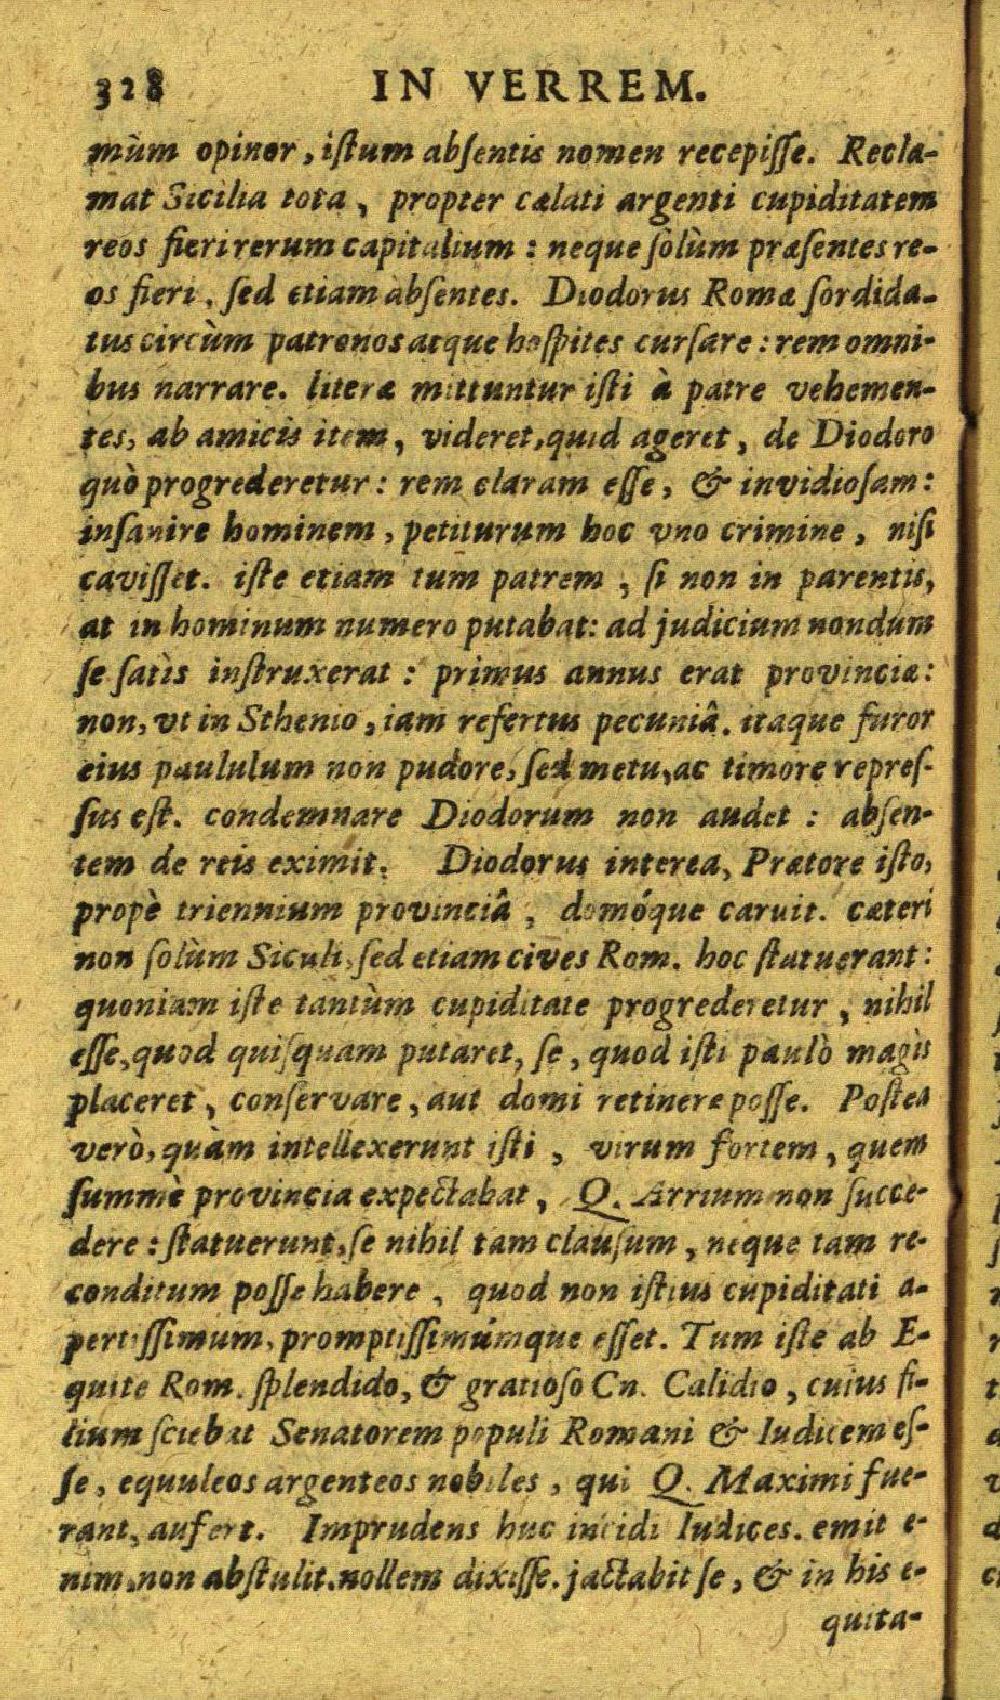 328 IN VERREM.
mùm opinor, iſtum abſentis nomen recepiſſe. Recla-
mat Sicilia tota, propter cælati argenti cupiditatem
reos fieri rerum capitalium : neque ſolùm præſentes re-
os fieri, ſed etiam àbſentes. Diodorus Romæ ſordida-
tus circùm patronos atque hoſpites curſare : rem omni-
bus narrare. literæ mittuntur iſti à patre vehemen-
tes, ab amicis item, videret, quid ageret, de Diodoro
quò progrederetur : rem claram eſſe, & invidioſam :
inſanire hominem, petiturum hoc vno crimine, niſi
caviſſet. iſte etiam tum patrem, ſi non in parentis,
at in hominum numero putabat : ad judicium nondum
ſe ſatìs inſtruxerat : primus annus erat provinciæ :
non, vt in Sthenio, iam refertus pecuniâ. itaque furor
eius paululum non pudore, ſed metu, ac timore repreſ-
ſus eſt. condemnare Diodorum non audet : abſen-
tem de reis eximit. Diodorus interea, Prætore iſto,
propè triennium provinciâ, domóque caruit. cæteri
non ſolùm Siculi, ſed etiam cives Rom. hoc ſtatuerant :
quoniam iſte tantùm cupiditate progrederetur, nihil
eſſe, quod quiſquam putaret, ſe, quod iſti paulò magìs
placeret, conſervare, aut domi retinere poſſe. Poſtea
verò, quàm intellexerunt iſti, virum fortem, quem
ſummè provincia expectabat, Q. Arrium non ſucce-
dere : ſtatuerunt, ſe nihil tam clauſum, neque tam re-
conditum poſſe habere, quod non iſtius cupiditati a-
pertiſſimum, promptiſſimúmque eſſet. Tum iſte ab E-
quite Rom. ſplendido, & gratioſo Cn. Calidio, cuius fi-
lium ſciebat Senatorem populi Romani & Iudicem eſ-
ſe, equuleos argenteos nobiles, qui Q. Maximi fue-
rant, aufert. Imprudens huc incidi Iudices. emit e-
nim, non abſtulit. nollem dixiſſe. jactabit ſe, & in his e-
quita-